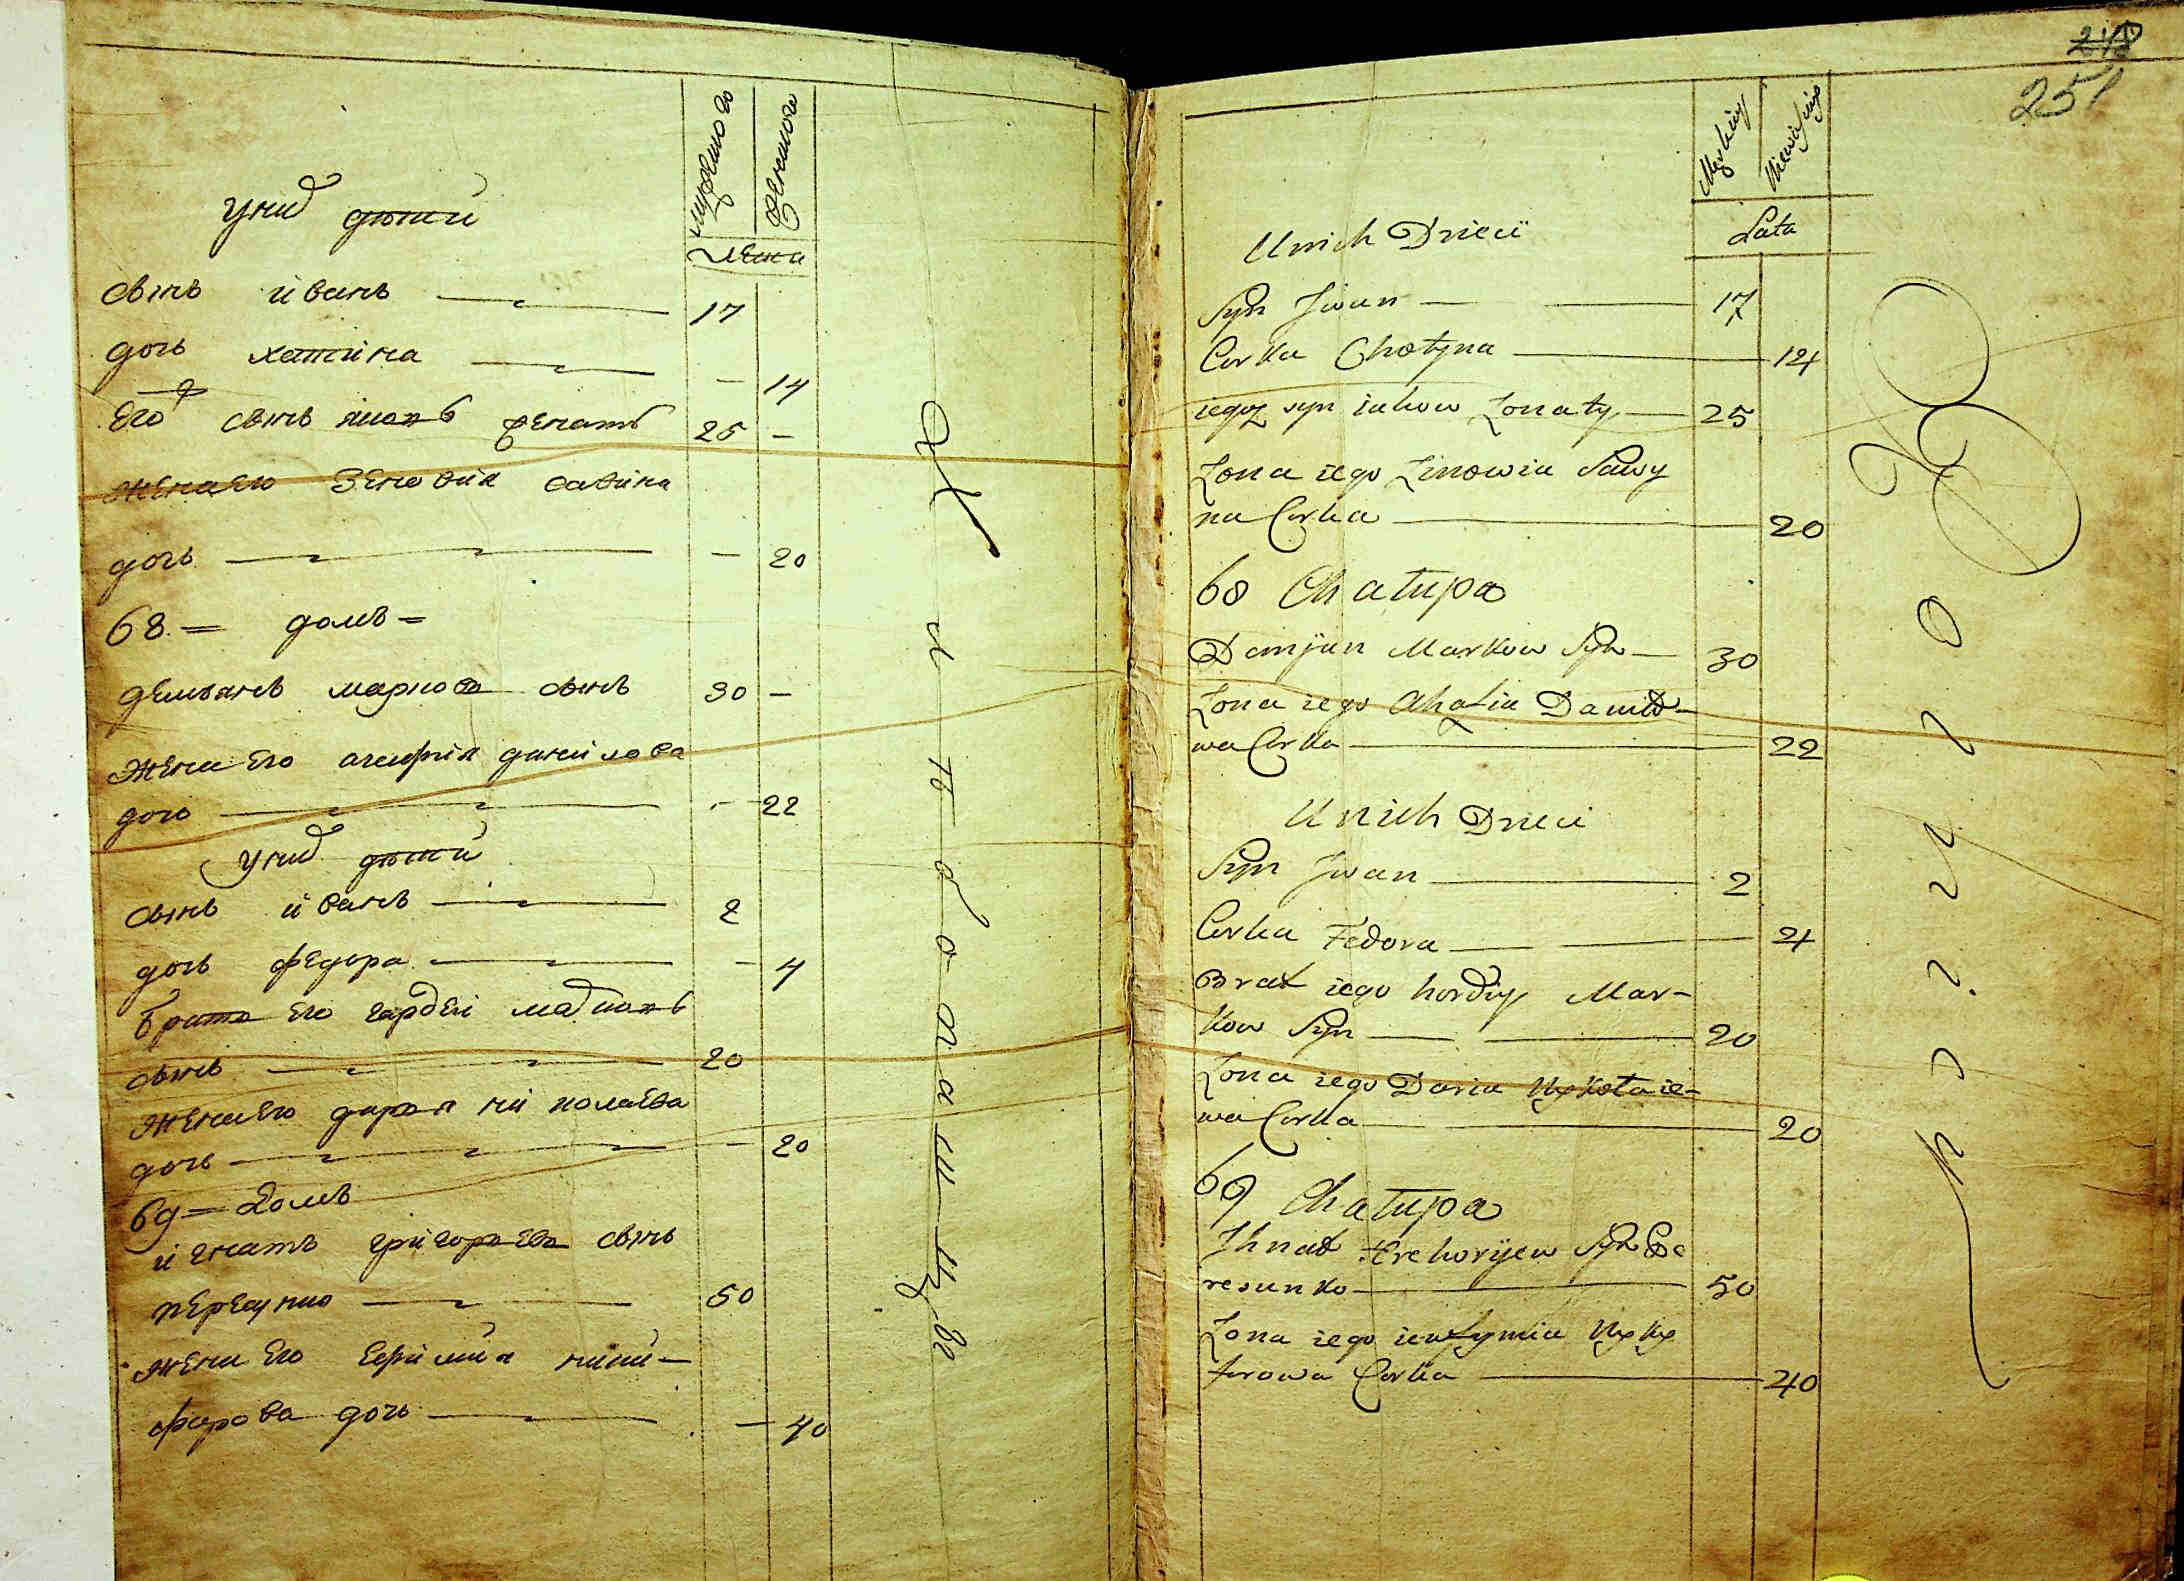 мужеска
женска
лета
у них детей
сынъ иванъ 17
дочь хатина - 14
его ж сынъ яковъ женатъ 25 -
жена его зеновия савина
дочь - 20
68 = домъ =
демьянъ марковъ сынъ 30 -
жена его агафия данилова
дочь - 22
у них детей
сынъ иванъ 2
дочь федора - 4
братъ его гордей марковъ
сынъ 20
жена его дария николаева
дочь - 20
69 = домъ
игнатъ григорьевъ сынъ
пересунко 50
жена его ефимия ники-
форова дочь - 40
251
Lata
Unich Dzieci
Syn Jwan 17
Corka Chotyna 14
iegoż syn iakow Zonaty 25
Zona iego Zinowia Sawy
na Corka 20
68 Chatupa
Demjan Markow Syn 30
Zona iego Ahafia Daniło-
wa Corka 22
Unich Dzieci
Syn Jwan 2
Corka Fedora 4
Brat iego hordiy Mar-
kow Syn 20
Zona iego Daria Nykołaie-
wa Corka 20
69 Chatupa
Ihnat Hrehoryiew Syn Pe
resunko 50
Zona iego iewfymia Nyky
forowa Corka 40